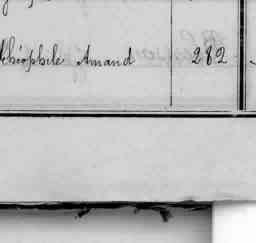 Théophile Amand 282